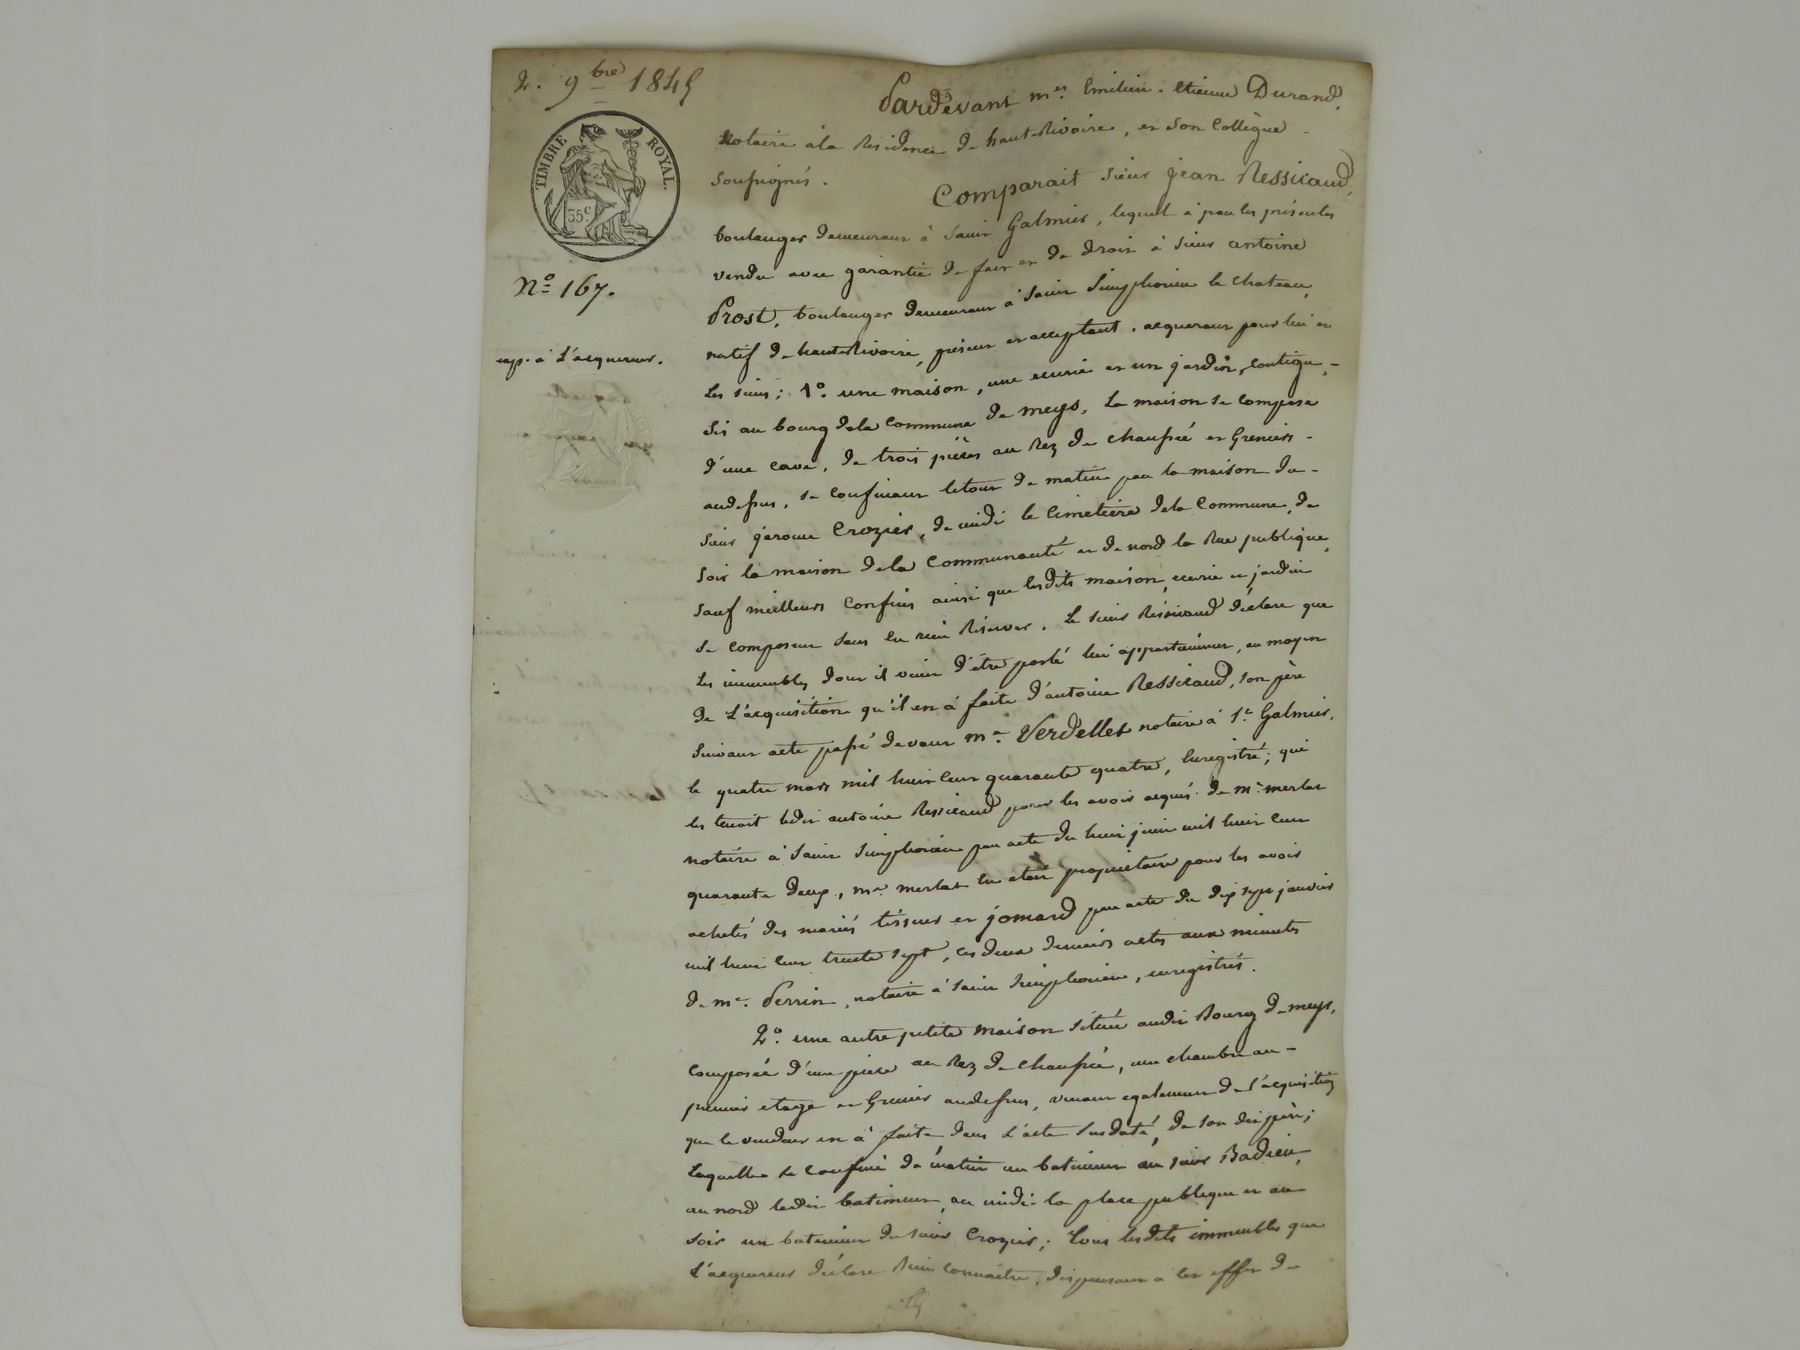 2. 9bre 1845
TIMBRE ROYAL.
35c
No 167.
exp. à L'acquereur.
Pardevant mes. Emilien Etienne Durand,
Notaire à la Residence de haute Rivoire, et Son Collègue
Soussignés.
Comparait Sieur Jean Ressicaud,
boulanger demeurant à Saint Galmier, lequel à par les présentes
vendu avec garantie de fait et de droit à Sieur antoine
Prost, boulanger demeurant à Saint Simphorien le chateau,
natif de haute Rivoire, présent et acceptant, acquereur pour lui et
les siens; 1o. une maison, une ecurie et un jardin, contigu,
sis au bourg dela Commune de meys. La maison se compose
d'une cave, de trois pièces au Rez de chaussée et Greniers
audessus, se confinant letout de matin par la maison du
Sieur jerome Crozier, de midi le Cimetiere dela Commune, de
soir la maison dela Communauté et de nord la Rue publique,
sauf meilleurs Confins ainsi que lesdits maison, ecurie et jardin
se composent sans en rien Réserver. Le sieur Ressicaud déclare que
les immeubles dont il vient d'être parlé lui appartiennent, au moyen
de L'acquisition qu'il en à faite d'antoine Ressicaud, son père
suivant acte passé devant me. Verdellet notaire à St. Galmier,
le quatre mars mil huit cent quarante quatre, Enregistré; qui
les tenait ledit antoine Ressicaud pour les avoir acquis de me. merlat
notaire à Saint Simphorien par acte du huit juin mil huit cent
quarante deux, me. merlat en etait propriétaire pour les avoir
achetés des mariés tisseur et jomard par acte du dix sept janvier
mil huit cent trente sept, ces deux derniers actes aux minutes
de me. Perrin, notaire à Saint Simphorien, enregistrés.
2o. une autre petite maison située audit Bourg de meys,
composée d'une pièce au Rez de chaussée, une chambre au
premier etage et Grenier audessus, venant egalement de l'acquisition
que le vendeur en à faite dans L'acte susdaté, de son dit père;
Laquelle se confine de matin un batiment au sieur Badieu,
au nord ledit batiment, au midi la place publique et au
soir un batiment du sieur Crozier; Tous lesdits immeubles que
L'acquereur déclare bien connaitre, dispensant à cet effet de